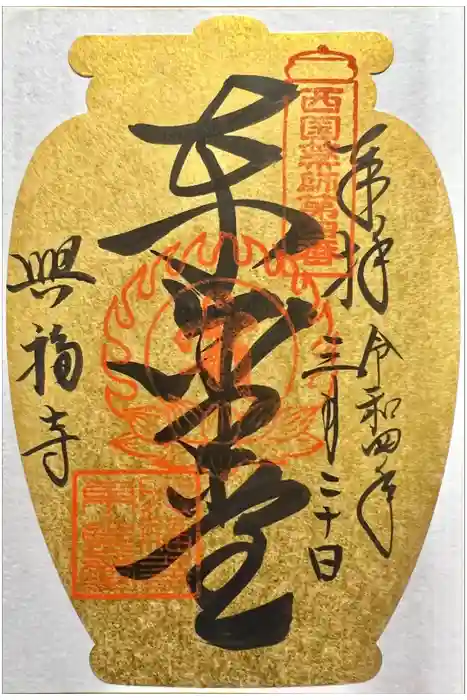 奉拝
令和四年
三月二十日
西国薬師第四番
東金堂
興福寺